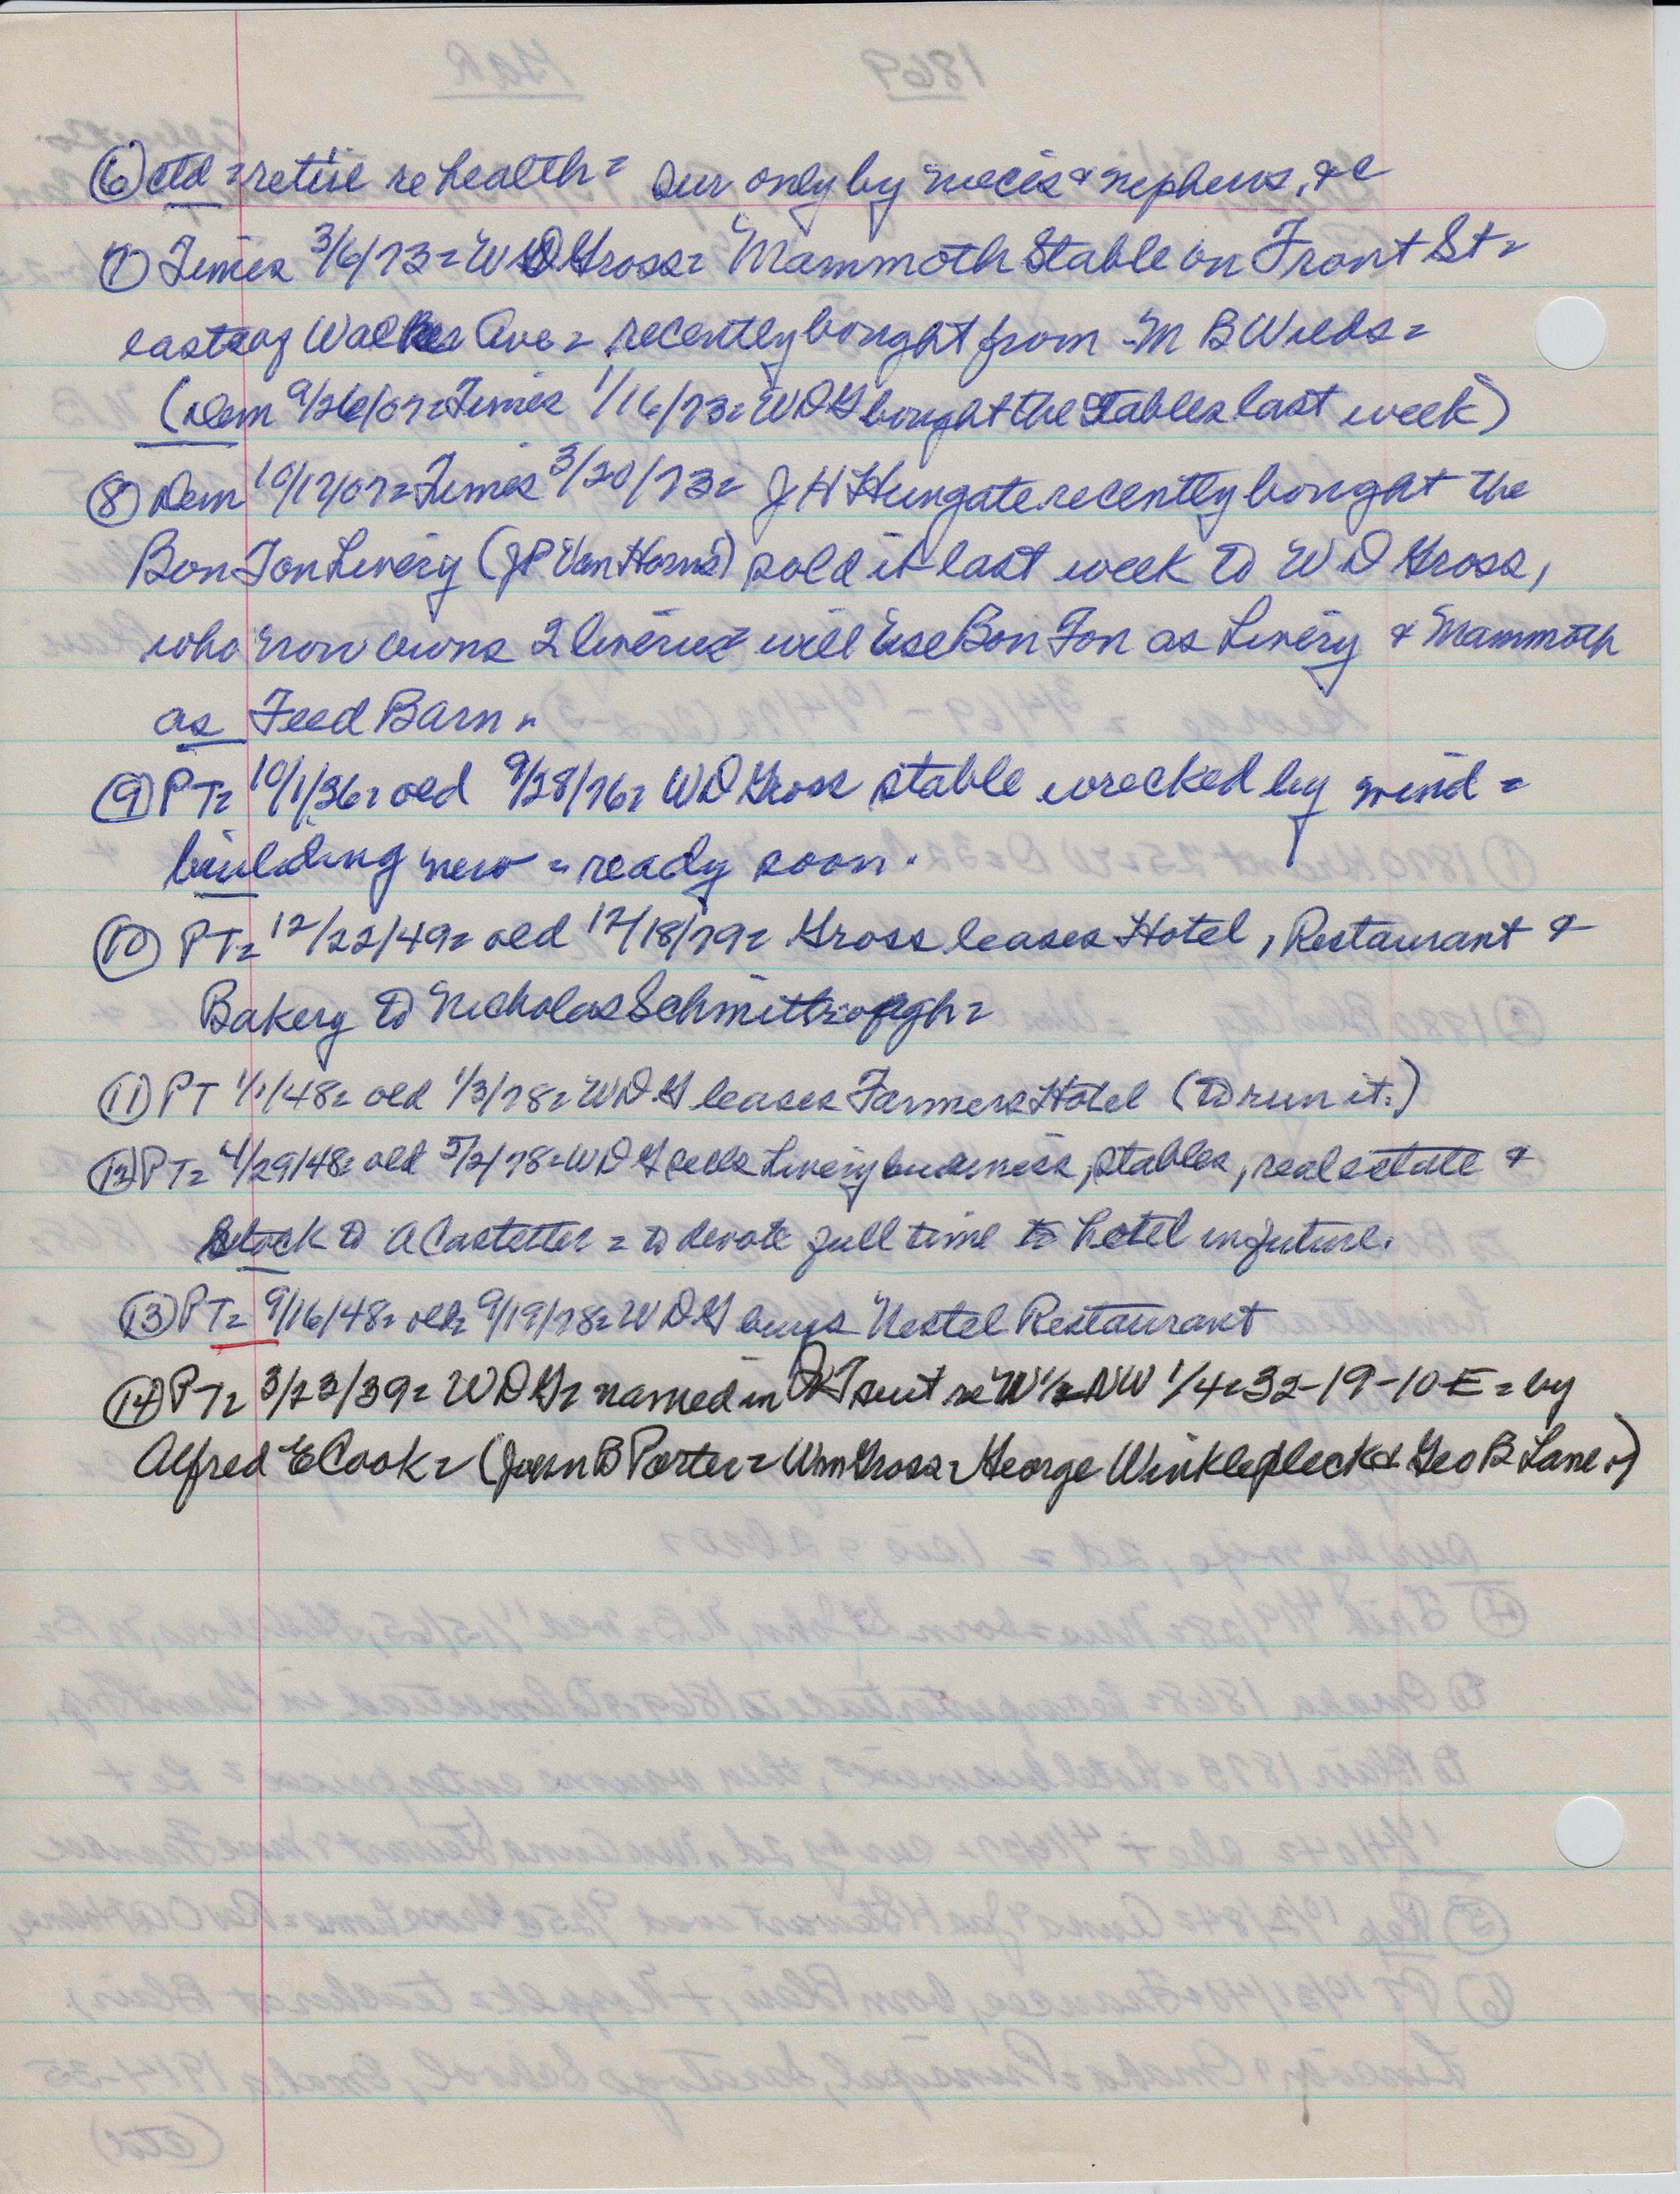 (6) ctd = retire re health = sur only by nieces & nephews, &c
(7) Times 3/6/73 = W D Gross = Mammoth Stable on Front St =
east of Walker Ave = recently bought from M B Wilds =
(Dem 9/26/07 = Times 1/16/73 = W D G bought the stables last week)
(8) Dem 10/17/07 = Times 3/20/73 = J H Hungate recently bought the
Bon Ton Livery (J P Van Horns) sold it last week to W D Gross,
who now owns 2 liveries will use Bon Ton as Livery & Mammoth
as Feed Barn =
(9) PT = 10/1/36 = old 9/28/76 = W D Gross stable wrecked by wind =
building new = ready soon.
(10) PT = 12/22/49 = old 12/18/79 = Gross leases Hotel, Restaurant &
Bakery to Nicholas Schmitt =
(11) PT 1/1/48 = old 1/3/78 = W D G leases Farmers Hotel (to run it.)
(12) PT = 4/29/48 = old 5/2/78 = W D G sells Livery business, stables, real estate &
stock to A Castetter = to devote full time to hotel in future.
(13) PT = 9/16/48 = old = 9/19/78 = W D G buys Nestel Restaurant
(14) PT = 3/23/39 = W D G = named in QT suit re W 1/2 NW 1/4 = 32-19-10-E = by
Alfred E Cook = (John B Porter = Wm Gross = George Winklepleck & Geo B Lane =)